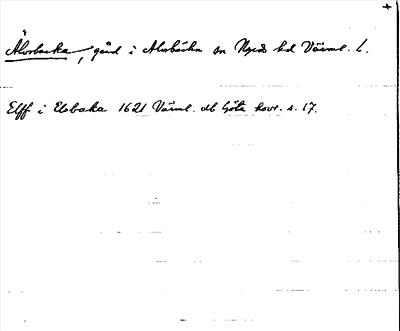 +
Älvsbacka, gård i Älvsbacka sn Nyeds hd Värml. l.
Elff i Elvbaka 1621 Värml. db Göta hovr. s. 17.